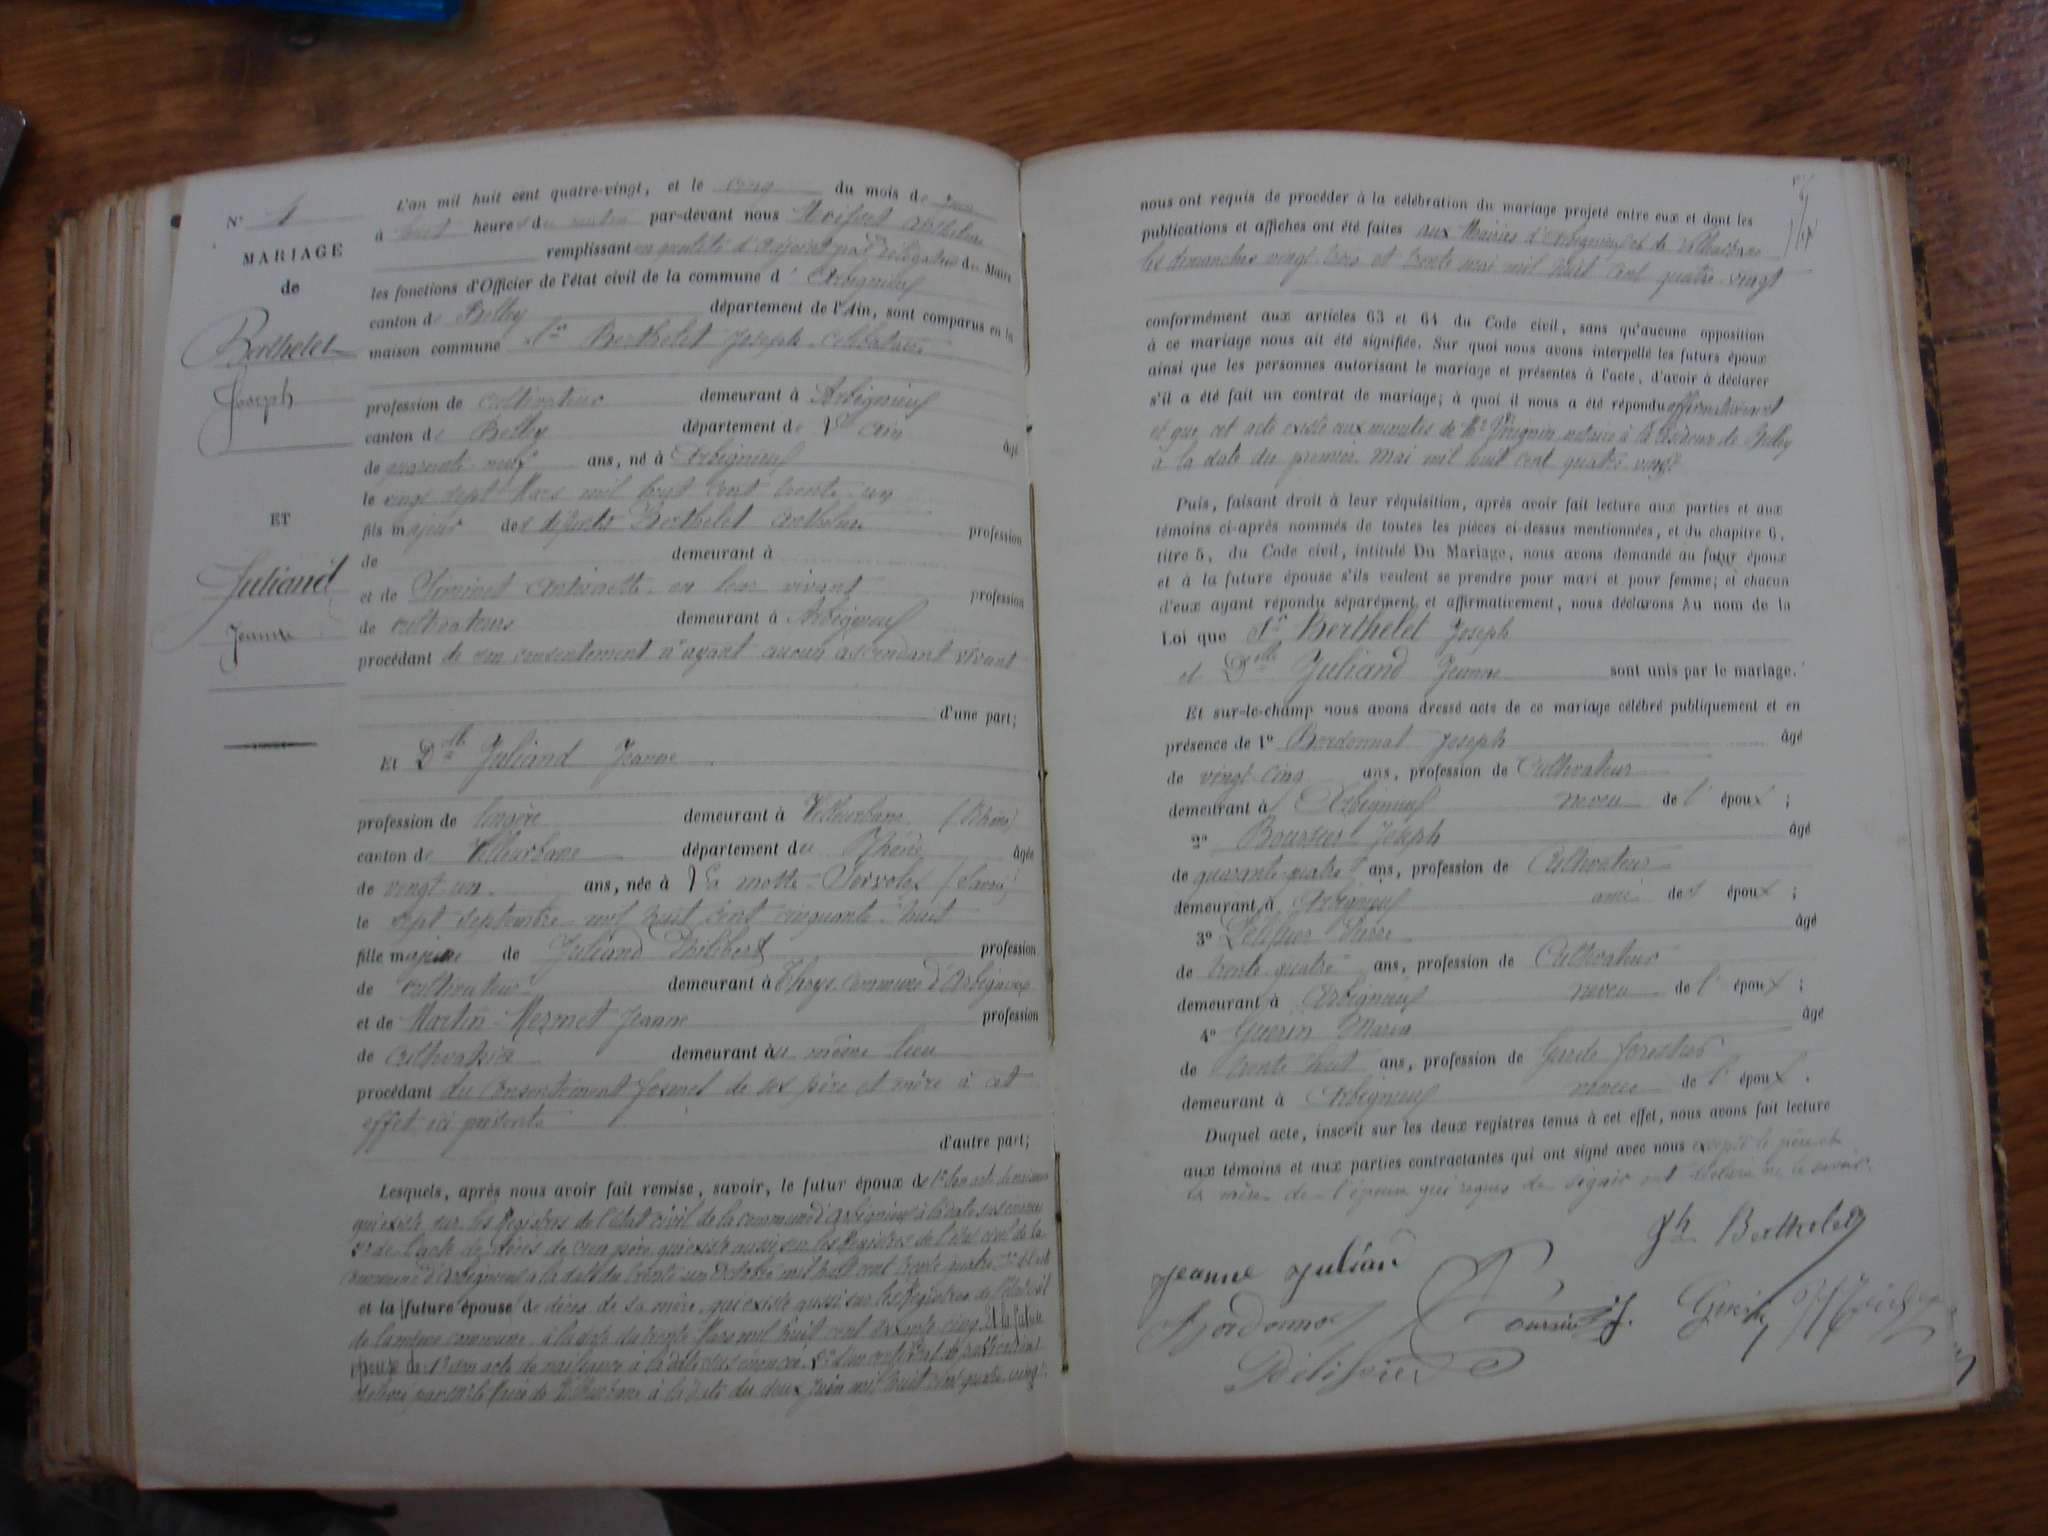 N° 1
MARIAGE
de
Berthelet
Joseph
ET
Juliand
Jeanne
L'an mil huit cent quatre-vingt, et le cinq du mois de juin
à huit heures du matin par-devant nous Anthelme
remplissant en qualité d'adjoint par délégation du Maire
les fonctions d'Officier de l'état civil de la commune d'Arbignieu
canton de Belley département de l'Ain, sont comparus en la
maison commune Sr Berthelet Joseph célibataire
profession de cultivateur demeurant à Arbignieu
canton de Belley département de l'Ain âgé
de quarante neuf ans, né à Arbignieu
le vingt sept Mars mil huit cent trente un
fils majeur des défunts Berthelet Anthelme profession
de demeurant à
et de Antoinette en leur vivant profession
de cultivateurs demeurant à Arbignieu
procédant de son consentement n'ayant aucun ascendant vivant
d'une part;
Et Dlle Juliand Jeanne
profession de lingère demeurant à Villeurbane (Rhône)
canton de Villeurbane département du Rhône âgée
de vingt un ans, née à La Motte Servolex (Savoie)
le sept septembre mil huit cent cinquante huit
fille majeure de Juliand Philibert profession
de cultivateur demeurant à Thoys commune d'Arbignieu
et de Martin Mermet Jeanne profession
de cultivatrice demeurant au même lieu
procédant du consentement formel de ses père et mère à cet
effet ici présents
d'autre part;
Lesquels, après nous avoir fait remise, savoir, le futur époux de 1° son acte de naissance
qui existe sur les Registres de l'état civil de la commune d'Arbignieu à la date sus énoncée
2° de l'acte de décès de son père qui existe aussi sur les Registres de l'état civil de la
commune d'Arbignieu à la date du trente un Octobre mil huit cent trente quatre
et la future épouse de décès de sa mère qui existe aussi sur les Registres de l'état civil
de la même commune à la date du trente Mars mil huit cent soixante cinq. Et la future
épouse de 1° son acte de naissance à la date sus énoncée. 2° d'un certificat de publication
délivré par Mr le Maire de Villeurbane à la date du deux Juin mil huit cent quatre vingt.
nous ont requis de procéder à la célébration du mariage projeté entre eux et dont les
publications et affiches ont été faites aux Mairies d'Arbignieu et de Villeurbane
les dimanches vingt trois et trente mai mil huit cent quatre vingt
conformément aux articles 63 et 64 du Code civil, sans qu'aucune opposition
à ce mariage nous ait été signifiée. Sur quoi nous avons interpellé les futurs époux
ainsi que les personnes autorisant le mariage et présentes à l'acte, d'avoir à déclarer
s'il a été fait un contrat de mariage; à quoi il nous a été répondu affirmativement
et que cet acte existe aux minutes de Me notaire à la résidence de Belley
à la date du premier Mai mil huit cent quatre vingt
Puis, faisant droit à leur réquisition, après avoir fait lecture aux parties et aux
témoins ci-après nommés de toutes les pièces ci-dessus mentionnées, et du chapitre 6,
titre 5, du Code civil, intitulé Du Mariage, nous avons demandé au futur époux
et à la future épouse s'ils veulent se prendre pour mari et pour femme; et chacun
d'eux ayant répondu séparément et affirmativement, nous déclarons au nom de la
Loi que Sr Berthelet Joseph
et Dlle Juliand Jeanne sont unis par le mariage.
Et sur-le-champ nous avons dressé acte de ce mariage célébré publiquement et en
présence de 1° Bordonnat Joseph âgé
de vingt cinq ans, profession de Cultivateur
demeurant à Arbignieu neveu de l'époux;
2° Joseph âgé
de quarante quatre ans, profession de Cultivateur
demeurant à Arbignieu ami des époux;
3° Pierre âgé
de trente quatre ans, profession de Cultivateur
demeurant à Arbignieu neveu de l'époux;
4° Guerin Marin âgé
de trente huit ans, profession de Garde forestier
demeurant à Arbignieu neveu de l'époux.
Duquel acte, inscrit sur les deux registres tenus à cet effet, nous avons fait lecture
aux témoins et aux parties contractantes qui ont signé avec nous excepté le père et
la mère de l'épouse qui requis de signer ont déclaré ne le savoir.
Jeanne Julian
Jh Berthelet